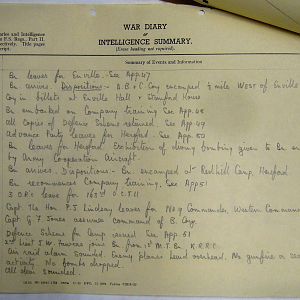 WAR DIARY
or
INTELLIGENCE SUMMARY.
(Erase heading not required).
Summary of Events and Information
Bn leaves for Enville. See App. 47
Bn arrives. Dispositions:- A.B.+C Coy encamped ½ mile WEST of Enville
Coy in billets at Enville Hall + Stamford House
Bn embarked on Company Training See App. 48
All copies of Defence Scheme returned. See App 49
Advance Party leaves for Hereford. See App. 50
Bn leaves for Hereford. Exhibition of dive bombing given to Bn
by Army Cooperation Aircraft.
Bn arrives. Dispositions - Bn. encamped at Redhill Camp, Hereford.
Bn recommences Company Training. See App 51
3 O.R's leave for 163rd O.C.T.U.
Capt The Hon P.S. Lindsay leaves for No 9 Commando, Western Command
Capt G.F. Jones assumes command of B. Coy
Defence Scheme for Camp issued See App 51
2nd Lieut J.W. joins Bn from 1st M.T. Bn K.R.R.C.
Air raid alarm sounded. Enemy planes heard overhead. No gunfire or
activity. No bombs dropped.
All clear sounded.